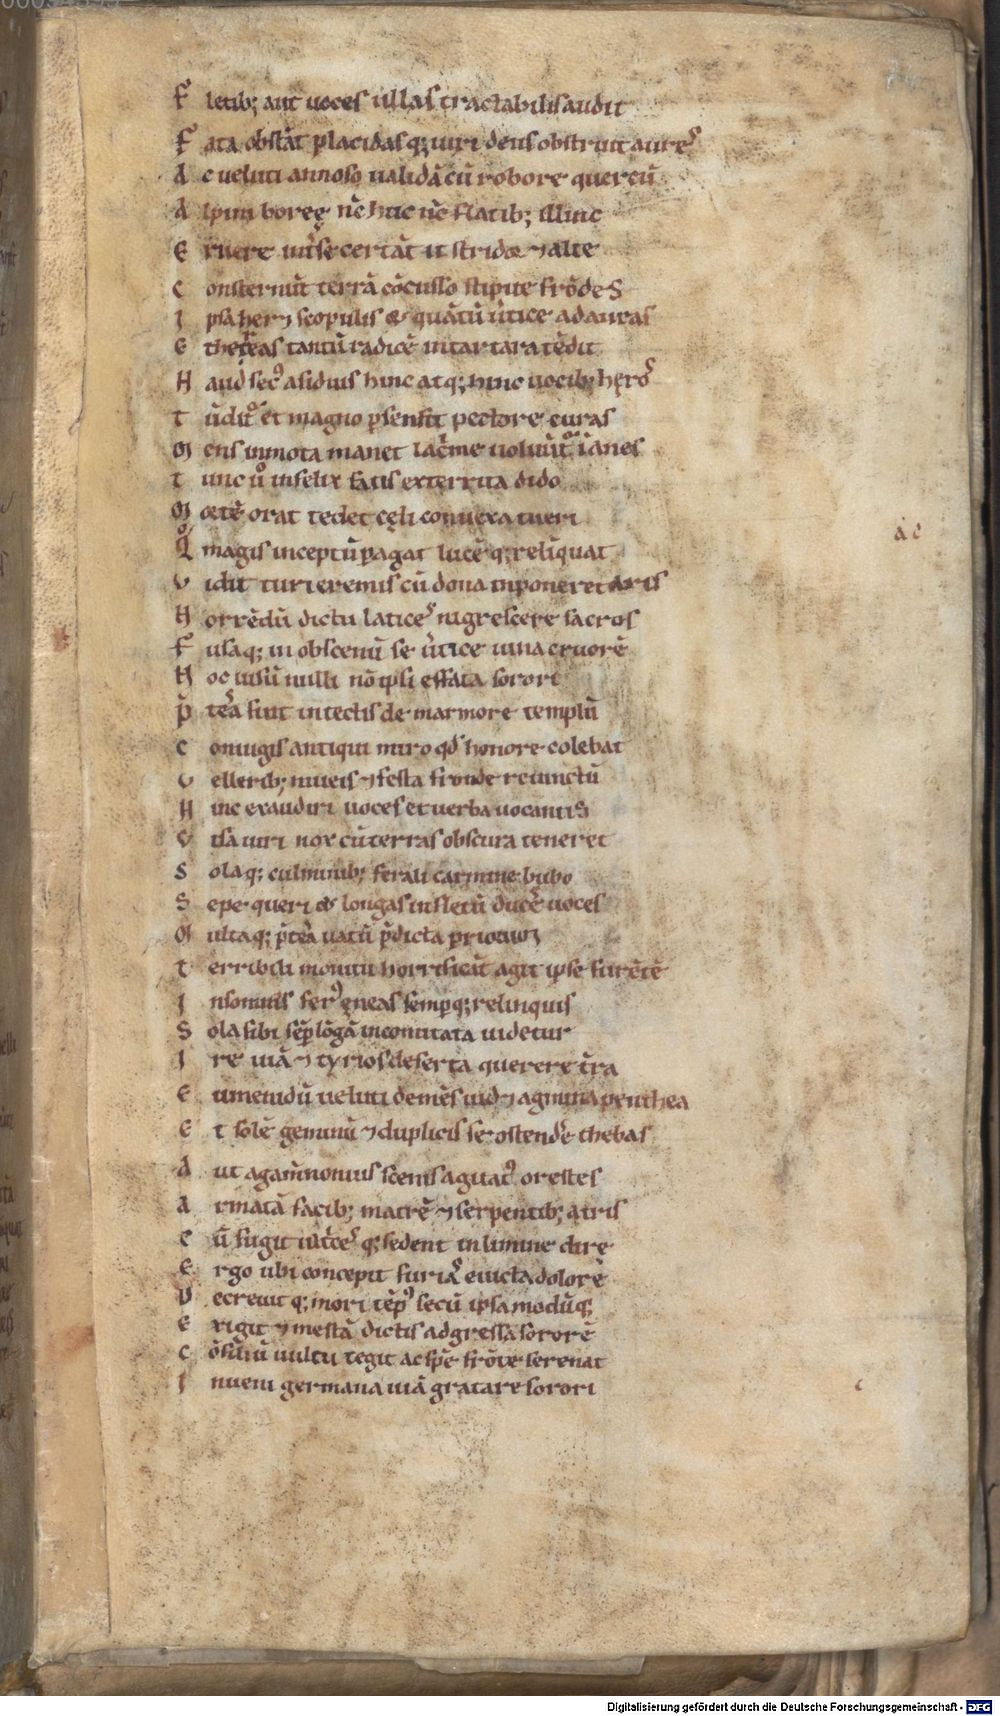 F letib; aut uoces ullas tractabilis audit
F ata obstāt placidasq; uiri deus obstruit aures
A c ueluti annoso ualidā cū robore quercū
A lpini boreę nc̄ huc nc̄ flatib; illinc
E ruere int̄ se certāt it stridor ⁊ alte
C onsternūt terrā cōcusso stipite frōdes
I psa heret scopulis & quātū u̇tice ad auras
E thereas tantū radicē in tartara tēdit
H aud sec᾽ asiduis hinc atq; hinc uocib; hęros
T ūdit᷑ et magno psensit pectore curas
M ens inmota manet lac̄me uoluūt᷑ īanes
T unc uͦ infelix fatis exterrita dido
M ortē orat tedet cęli conuexa tueri
Qͦ magis inceptū pagat lucēq; relīquat
V idit turicremis cū dona inponeret aris
H orrēdū dictu latices nigrescere sacros
F usaq; in obscenū se u̇tice uina cruorē
H oc uisū nulli nō ipsi effata sorori
P̄ tea fuit in tectis de marmore templū
C oniugis antiqui miro qd̄ honore colebat
V ellerib; niueis ⁊ festa fronde reuinctū
H inc exaudiri uoces et uerba uocantis
V isa uiri nox cū terras obscura teneret
S olaq; culminib; ferali carmine bubo
S epe queri & longas in fletū ducē uoces
M ultaq; p̄tea uatū p̄dicta priorum
T erribili monitu horrificāt agit ipse furētē
I nsomnis fer᾽ ęneas sempq; relinquis
S ola sibi sēp lōgā incomitata uidetur
I re uiā ⁊ tyrios deserta querere t̄ra
E umenidū ueluti demēs uid⁊ agmina penthea
E t solē geminū ⁊ duplicis se ostendē thebas
A ut agam̄nonius scenis agitat᾽ orestes
A rmatā facib; matrē ⁊ serpentib; atris
C ū fugit ult̄cesq; sedent in limine dire
E rgo ubi concepit furias euicta dolore
D ecreuitq; mori tēp᾽ secū ipsa modūq;
E xigit ⁊ mestā dictis adgressa sororē
C ōsiliū uultu tegit ac spē frōte serenat
I nueni germana uiā gratare sorori
a c
c
Digitalisierung gefördert durch die Deutsche Forschungsgemeinschaft - DFG